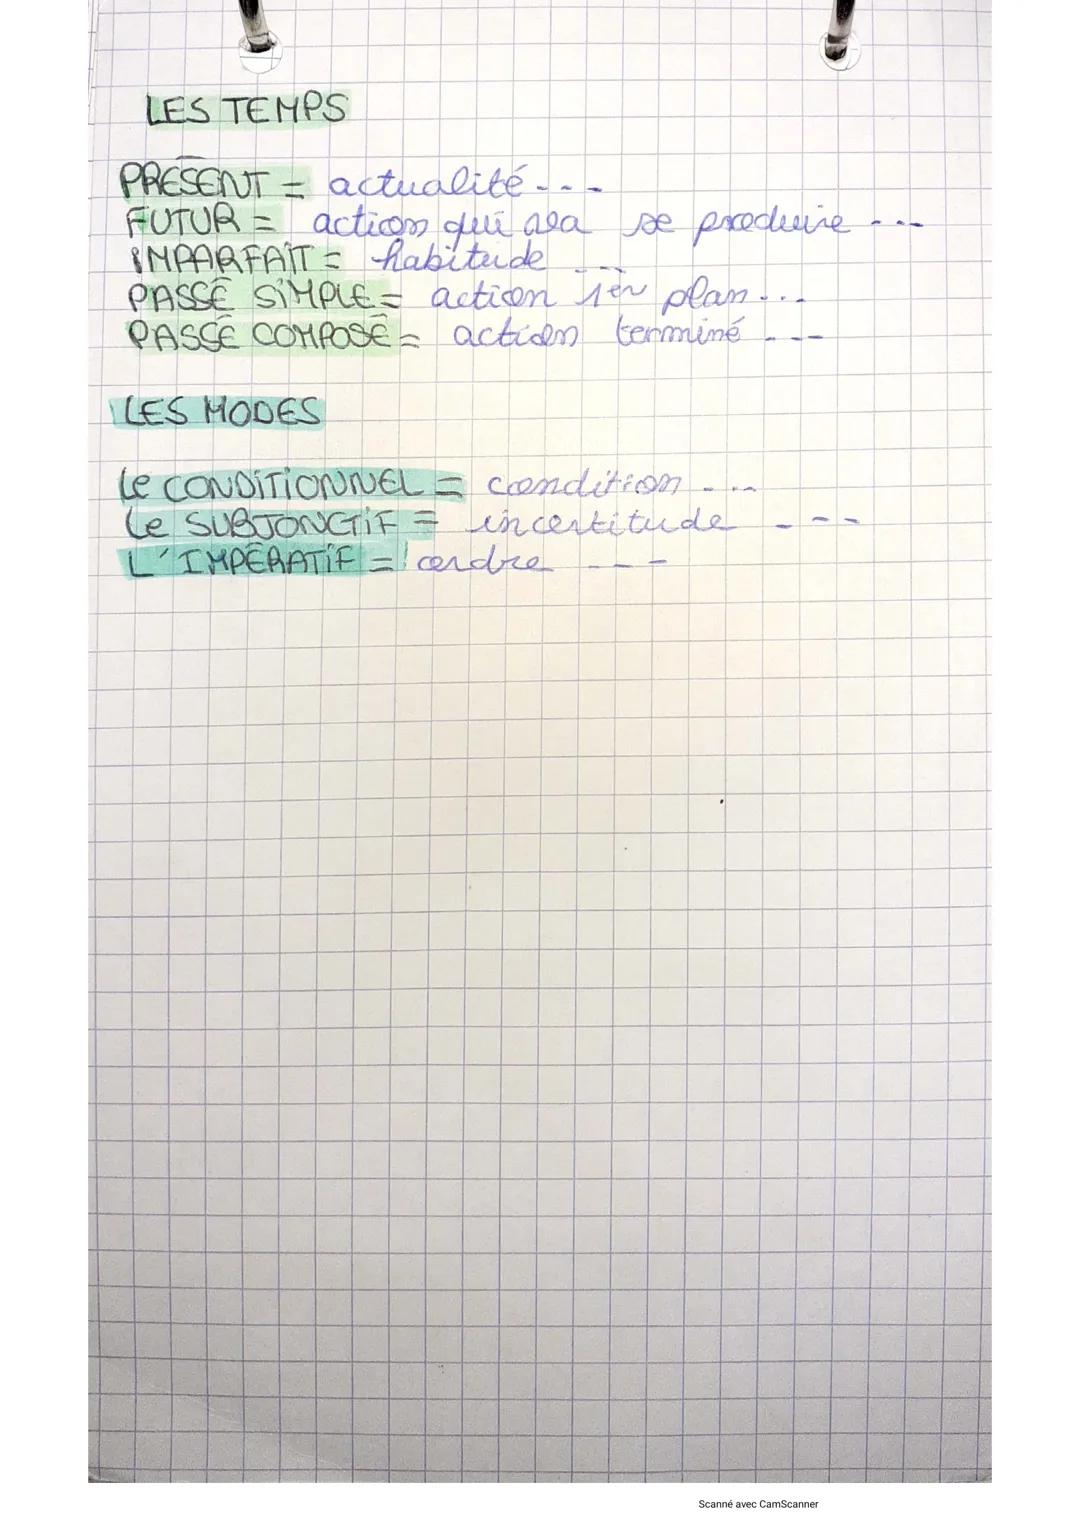 LES TEMPS
PRÉSENT = actualité ---
FUTUR = action qui va se produire ---
IMPARFAIT = habitude ---
PASSÉ SIMPLE = action 1er plan ...
PASSÉ COMPOSÉ = action terminé ---
LES MODES
Le CONDITIONNEL = condition ---
Le SUBJONCTIF = incertitude ---
L'IMPÉRATIF = ordre ---
Scanné avec CamScanner